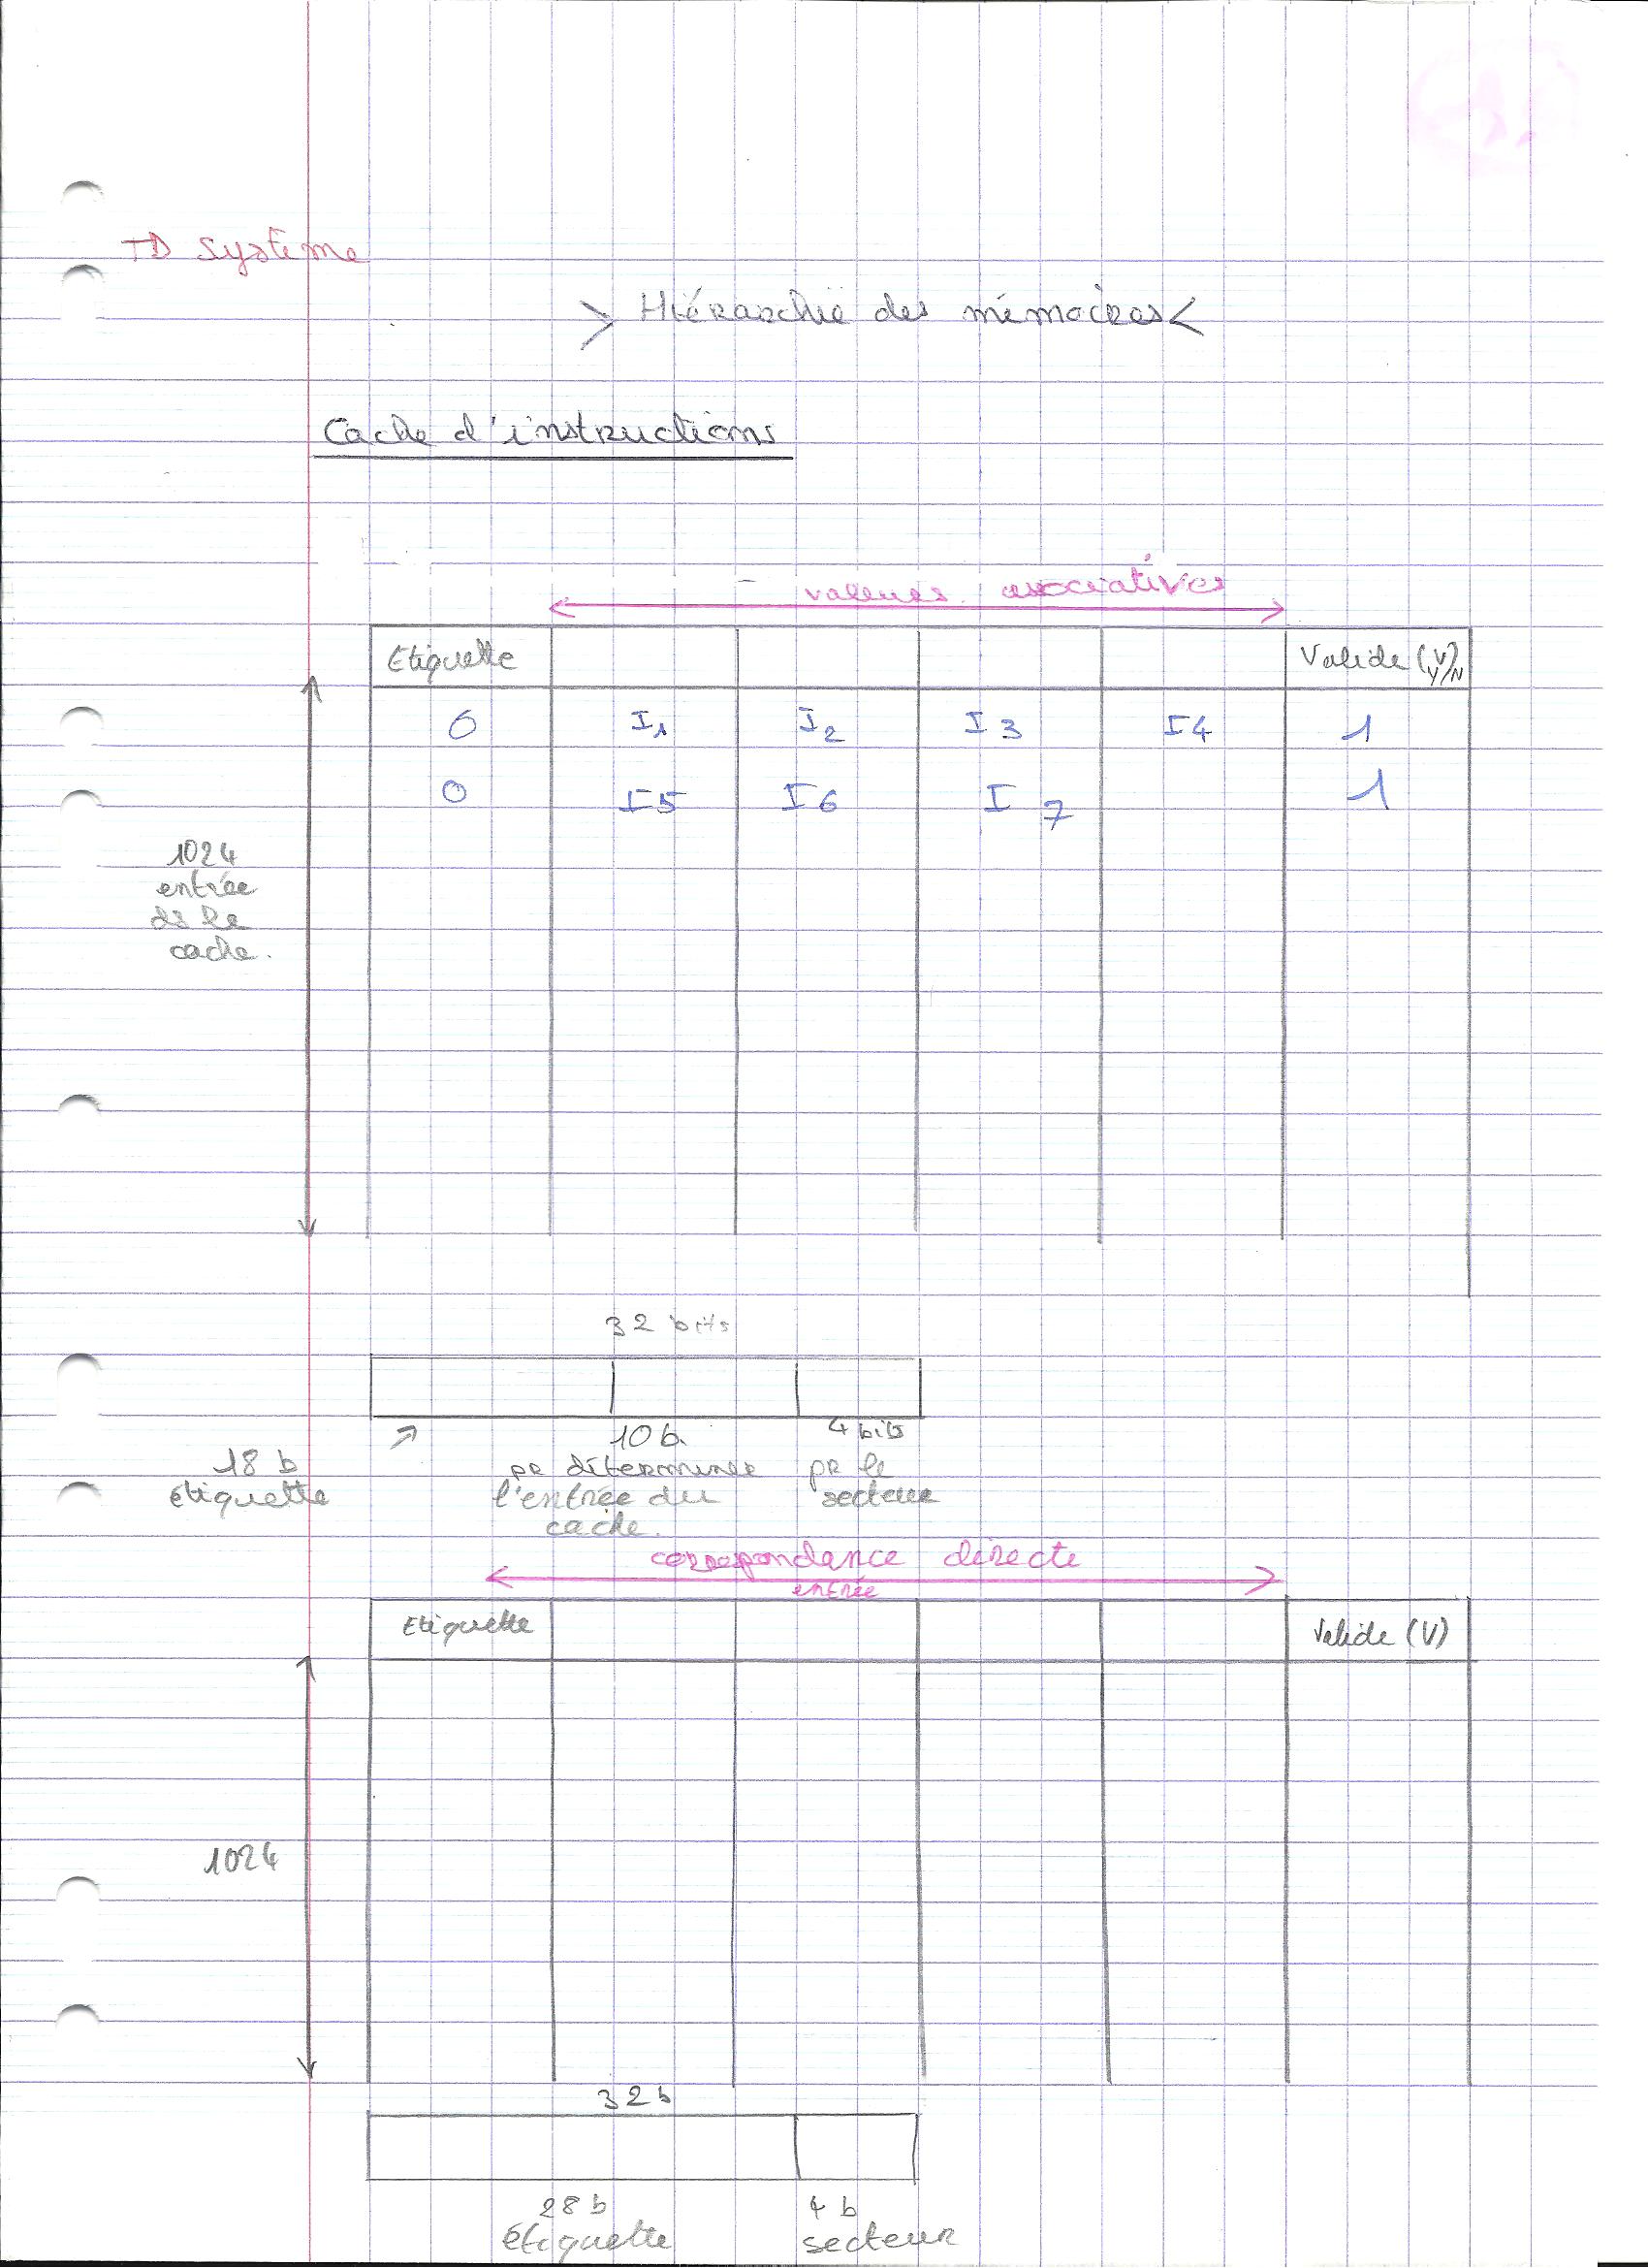 TD Système
> Hiérarchie des mémoires <
Cache d'instructions
valeurs associatives
Etiquette Valide (V) Y/N
0 I1 I2 I3 I4 1
0 I5 I6 I7 1
1024
entrée
ds le
cache.
32 bits
10 b. 4 bits
18 b pr déterminer pr le
étiquette l'entrée du secteur
cache.
correspondance directe
entrée
Etiquette Valide (V)
1024
32 b
28 b 4 b
étiquette secteur